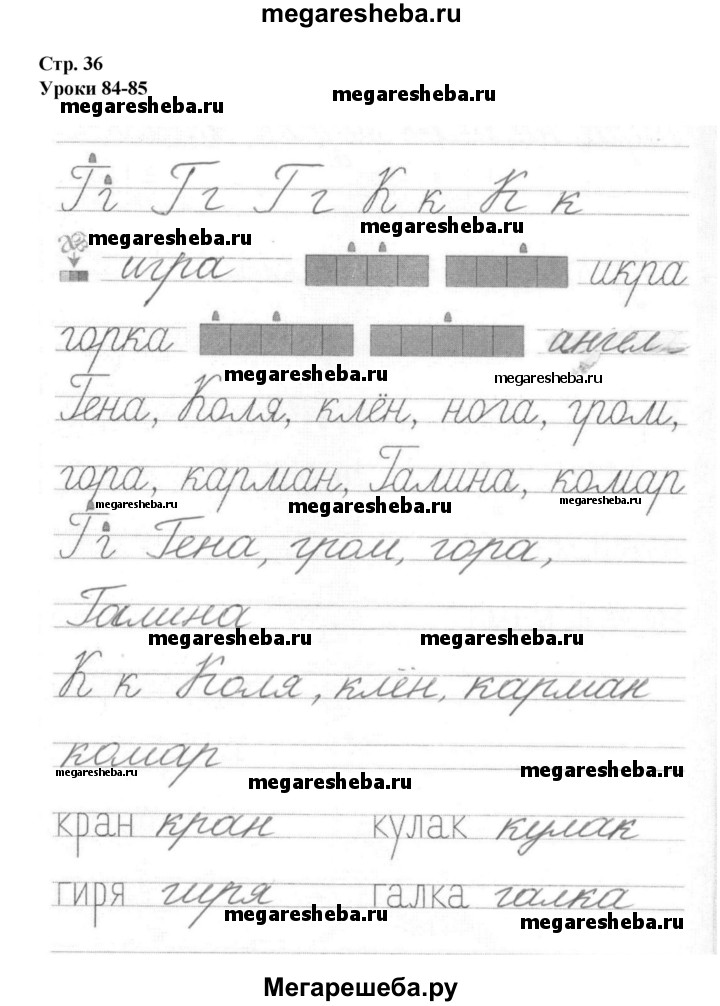 megaresheba.ru
Стр. 36
Уроки 84-85
megaresheba.ru megaresheba.ru
Г г Г г Г г К к К к
megaresheba.ru megaresheba.ru
игра икра
горка ангел
megaresheba.ru megaresheba.ru
Гена, Коля, клён, нога, гром,
гора, карман, Галина, комар
megaresheba.ru megaresheba.ru megaresheba.ru
Г г Гена, гром, гора,
Галина
megaresheba.ru megaresheba.ru
К к Коля, клён, карман
комар
megaresheba.ru megaresheba.ru megaresheba.ru
кран кран кулак кулак
гиря гиря галка галка
megaresheba.ru megaresheba.ru
Мегарешеба.ру